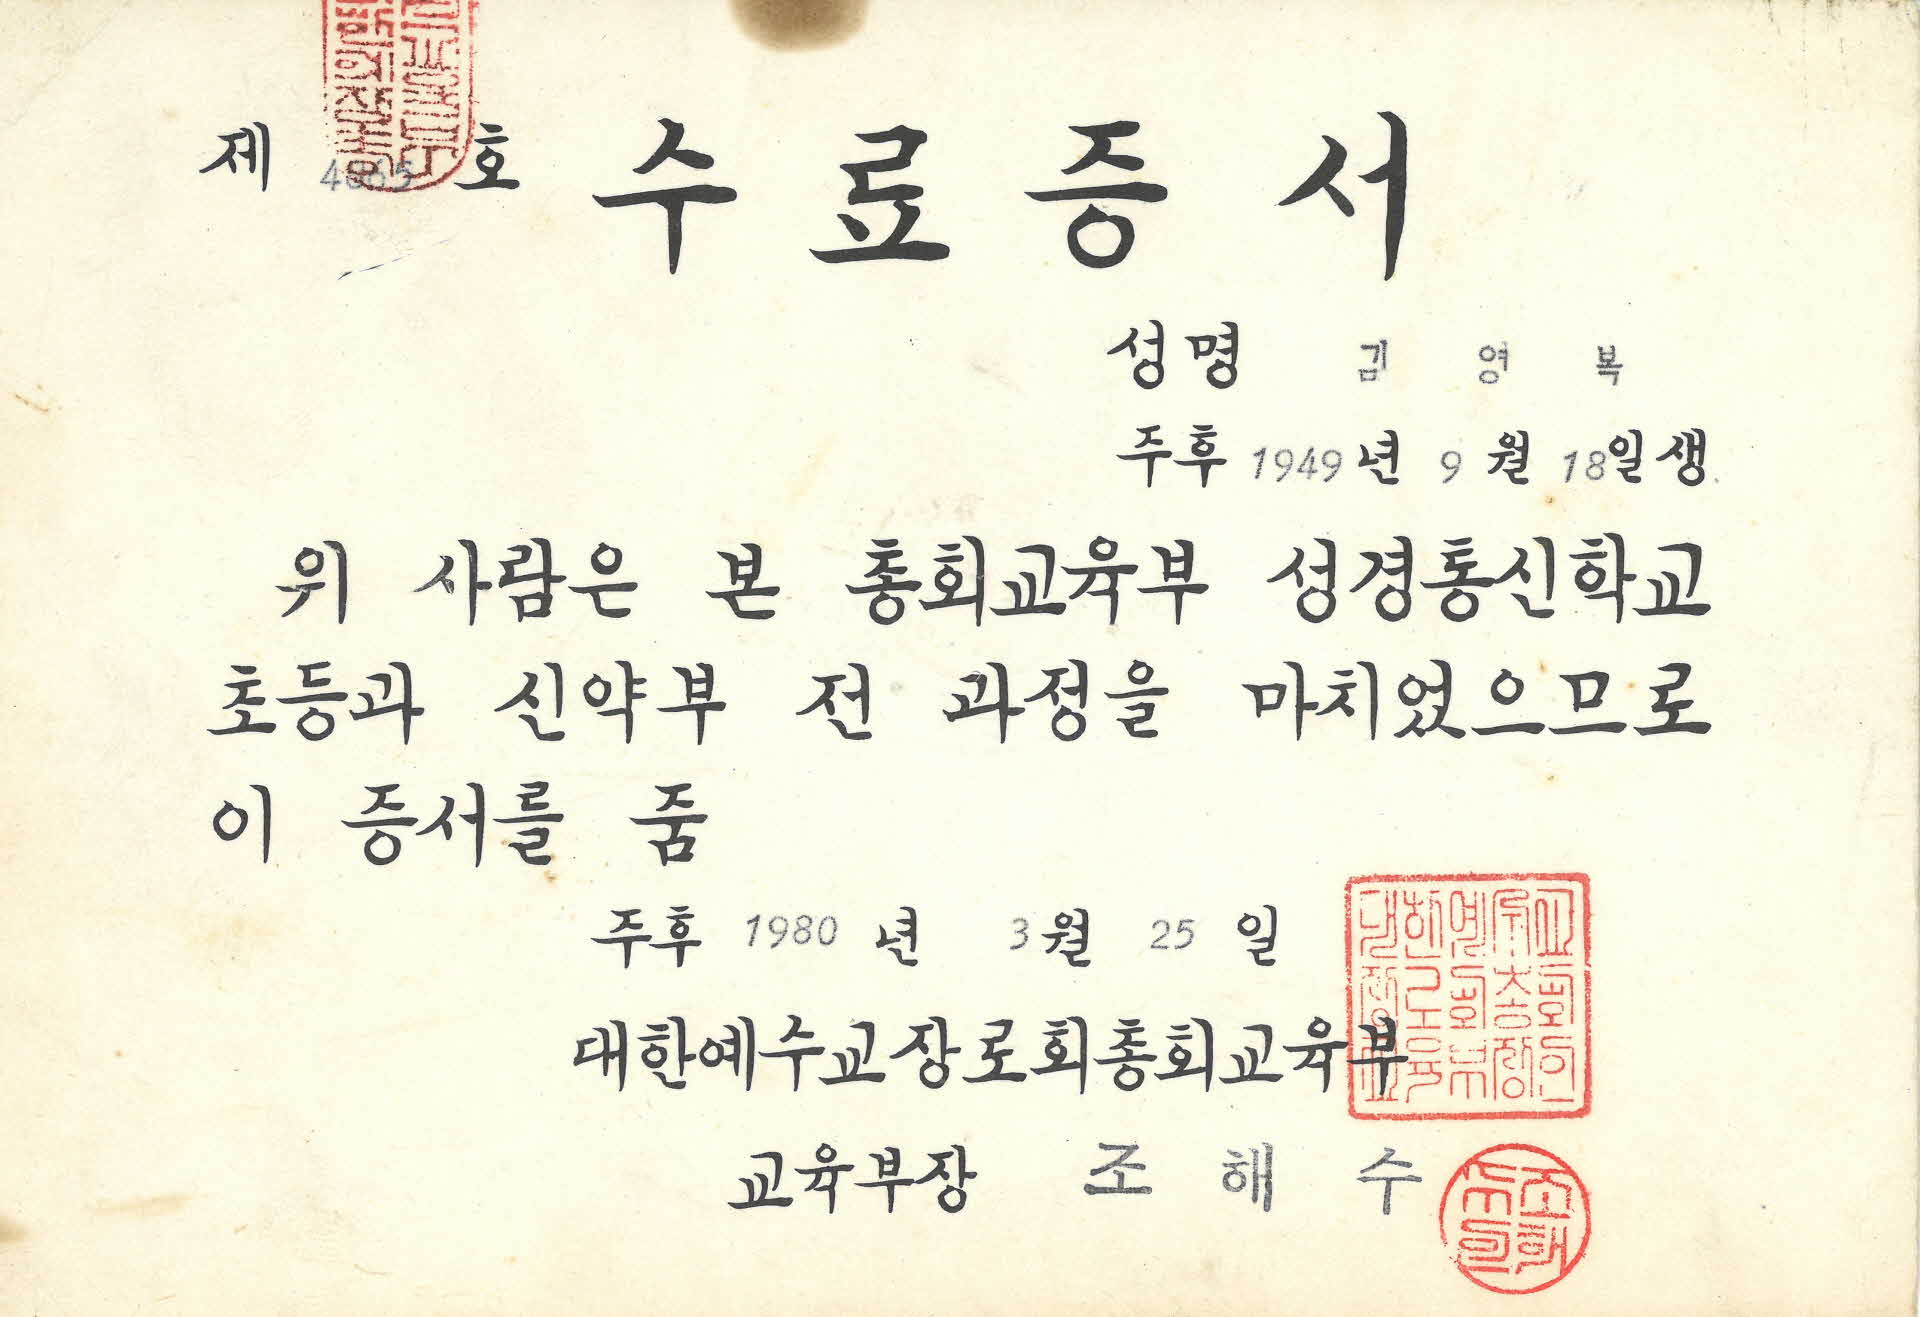 제 4065 호 수료증서
성명 김 영 복
주후 1949년 9월 18일생
위 사람은 본 총회교육부 성경통신학교
초등과 신약부 전 과정을 마치었으므로
이 증서를 줌
주후 1980년 3월 25일
대한예수교장로회총회교육부
교육부장 조해수